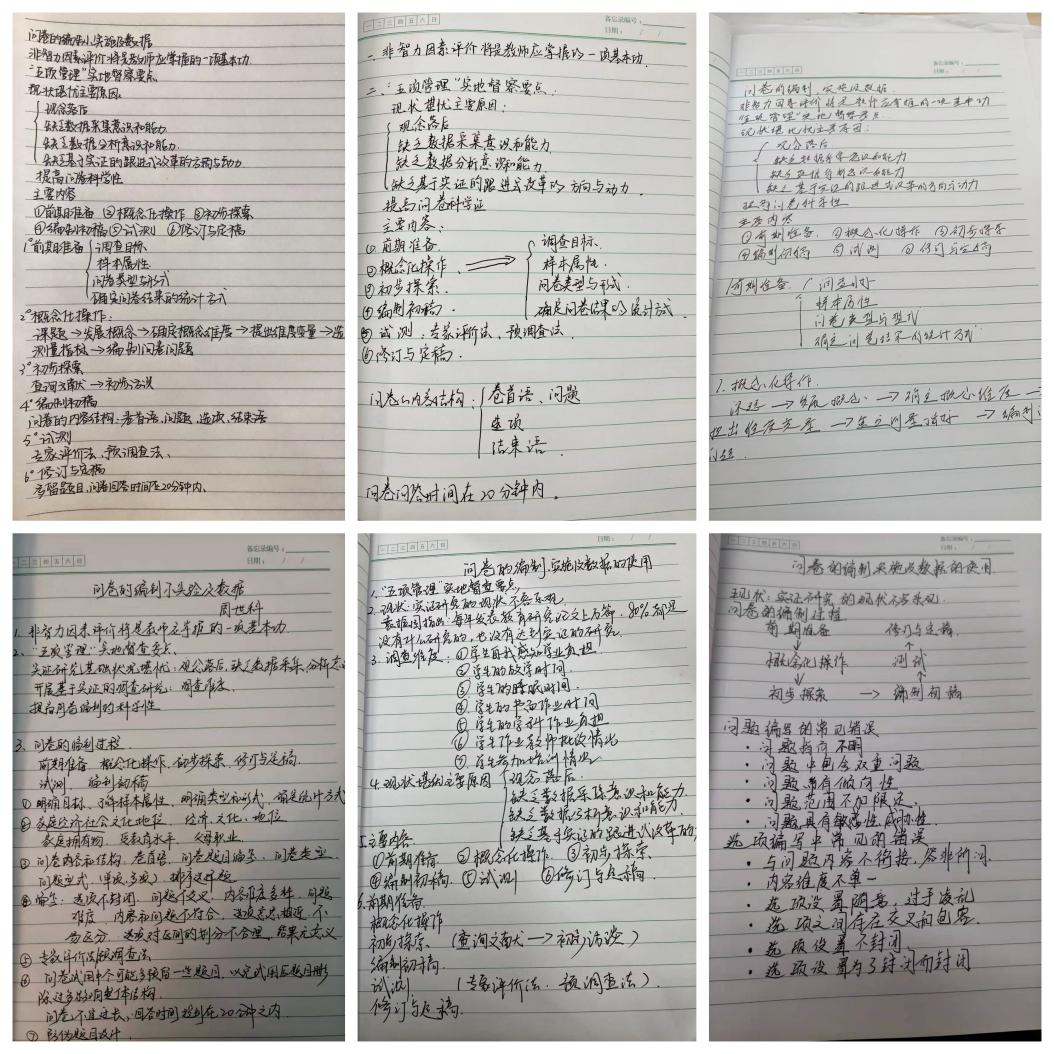 问卷的编制、实施及数据
非智力因素评价将是教师应掌握的一项基本功
"五项管理"实地督察要点
现状堪忧主要原因
观念落后
缺乏数据采集意识和能力
缺乏数据分析意识和能力
缺乏基于实证的跟进式改革的方向与动力
提高问卷科学性
主要内容
①前期准备 ②概念化操作 ③初步探索
④编制初稿 ⑤试测 ⑥修订与定稿
1°前期准备
调查目标
样本属性
问卷类型与形式
确定问卷结果的统计方式
2°概念化操作:
课题→发展概念→确定概念维度→提出维度变量→
测量指标→编制问卷问题
3°初步探索
查询文献→初步访谈
4°编制初稿
问卷的内容结构:卷首语、问题、选项、结束语
5°试测
专家评价法、预调查法、
6°修订与定稿
问卷回答时间在20分钟内、
一二三四五六日
备忘录编号:
日期: / /
一、非智力因素评价将是教师应掌握的一项基本功
二、"五项管理"实地督察要点:
现状堪忧主要原因:
观念落后
缺乏数据采集意识和能力
缺乏数据分析意识和能力
缺乏基于实证的跟进式改革的方向与动力
提高问卷科学证
主要内容:
① 前期准备
② 概念化操作
③ 初步探索
④ 编制初稿
调查目标
样本属性
问卷类型与形式
确定问卷结果的统计方式
⑤ 试测:专家评价法、预调查法
⑥ 修订与定稿
问卷的内容结构:
卷首语、问题
选项
结束语
问卷问答时间在20分钟内。
一二三四五六日
备忘录编号:
日期: / /
问卷的编制、实施及数据
非智力因素评价将是教师应掌握的一项基本功
现状堪忧主要原因:
观念落后
缺乏数据采集意识和能力
缺乏数据分析意识和能力
缺乏基于实证的跟进式改革的方向与动力
提高问卷科学性
主要内容
①前期准备 ②概念化操作 ③初步探索
④编制初稿 ⑤试测 ⑥修订与定稿
前期准备
样本属性
问卷类型与型式
确定问卷结果的统计方式
1.概念化操作
课题→发展概念→确立概念维度→
提出维度变量→建立测量指标→编制
问题
一二三四五六日
备忘录编号:
日期: / /
问卷的编制、实验及数据
周世科
1、非智力因素评价将是教师应掌握的一项基本功
2、"五项管理"实地督查要点:
实证研究基础状况堪忧:观念落后,缺乏数据采集、分析意
开展基于实证的调查研究:调查维度
提高问卷编制的科学性
3、问卷的编制过程
前期准备、概念化操作、初步探索、修订与定稿
试测、编制初稿
①明确目标、了解样本属性、明确类型和形式、确定统计方式
②家庭经济社会文化地位:经济、文化、地位
家庭拥有物、受教育水平、父母职业
③问卷内容和结构:卷首语、问卷题目
问题型式(单选、多选)、排序选择题
选项不封闭、问题不交叉、内容维度多样
难度、内容和问题不符合
易区分、选项对区间的划分不合理、结果无意义
⑤专家评价法预调查法
⑥问卷试用中可能多预留一些题目,以免试用后题目删
除过多影响整体结构
问卷不宜过长,回答时间控制在20分钟之内
⑦防伪题目设计
一二三四五六日
备忘录编号:
日期: / /
问卷的编制、实施及数据的使用
1."五项管理"实地督查要点
2.现状:实证研究的现状不容乐观
数据图指出:每年发表教育研究论文上万篇,80%都是
没有什么研究的,也没有达到实证的研究
3.调查维度:①学生自我感知学业负担
②学生的放学时间
③学生的睡眠时间
④学生的书面作业时间
⑤学生的学科作业负担
⑥学生作业教师批改情况
⑦学生参加培训情况
4.现状堪忧主要原因
观念落后
缺乏数据采集意识和能力
缺乏数据分析意识和能力
缺乏基于实证的跟进式改革的
5.主要内容
①前期准备 ②概念化操作 ③初步探索
④编制初稿 ⑤试测 ⑥修订与定稿
6.前期准备
概念化操作
初步探索(查询文献→初步访谈)
编制初稿
试测(专家评价法、预调查法)
修订与定稿
问卷的编制实施及数据的使用
现状:实证研究的现状不容乐观
问卷的编制过程
前期准备 修订与定稿
↓ ↑
概念化操作 测试
↓ ↑
初步探索 → 编制初稿
问题编写的常见错误
·问题指向不明
·问题中包含双重问题
·问题带有倾向性
·问题范围不加限定
·问题具有敏感性或威胁性
选项编写中常见的错误
·与问题内容不衔接,答非所问
·内容维度不单一
·选项设置随意,过于凌乱
·选项之间存在交叉和包容
·选项设置不封闭
·选项设置为了封闭而封闭